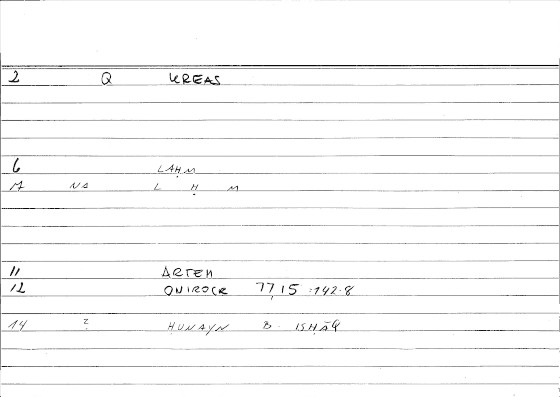 2 Q KREAS
6 LAḤM
M NS L Ḥ M
11 ARTEM
12 ONIROCR 77,15 :142.8
14 2 ḤUNAYN B. ISḤĀQ